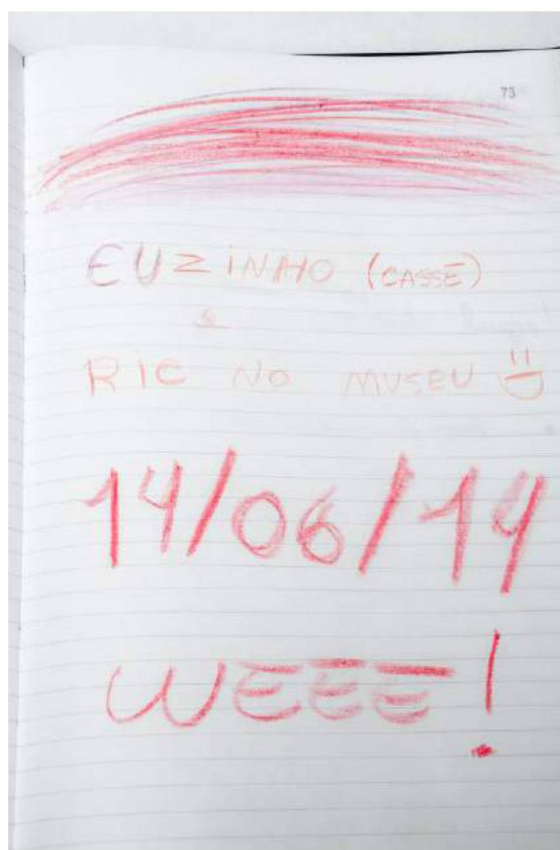 73
EUZINHO (CASSÉ)
&
RIC NO MUSEU =D
14/06/14
WEEE!